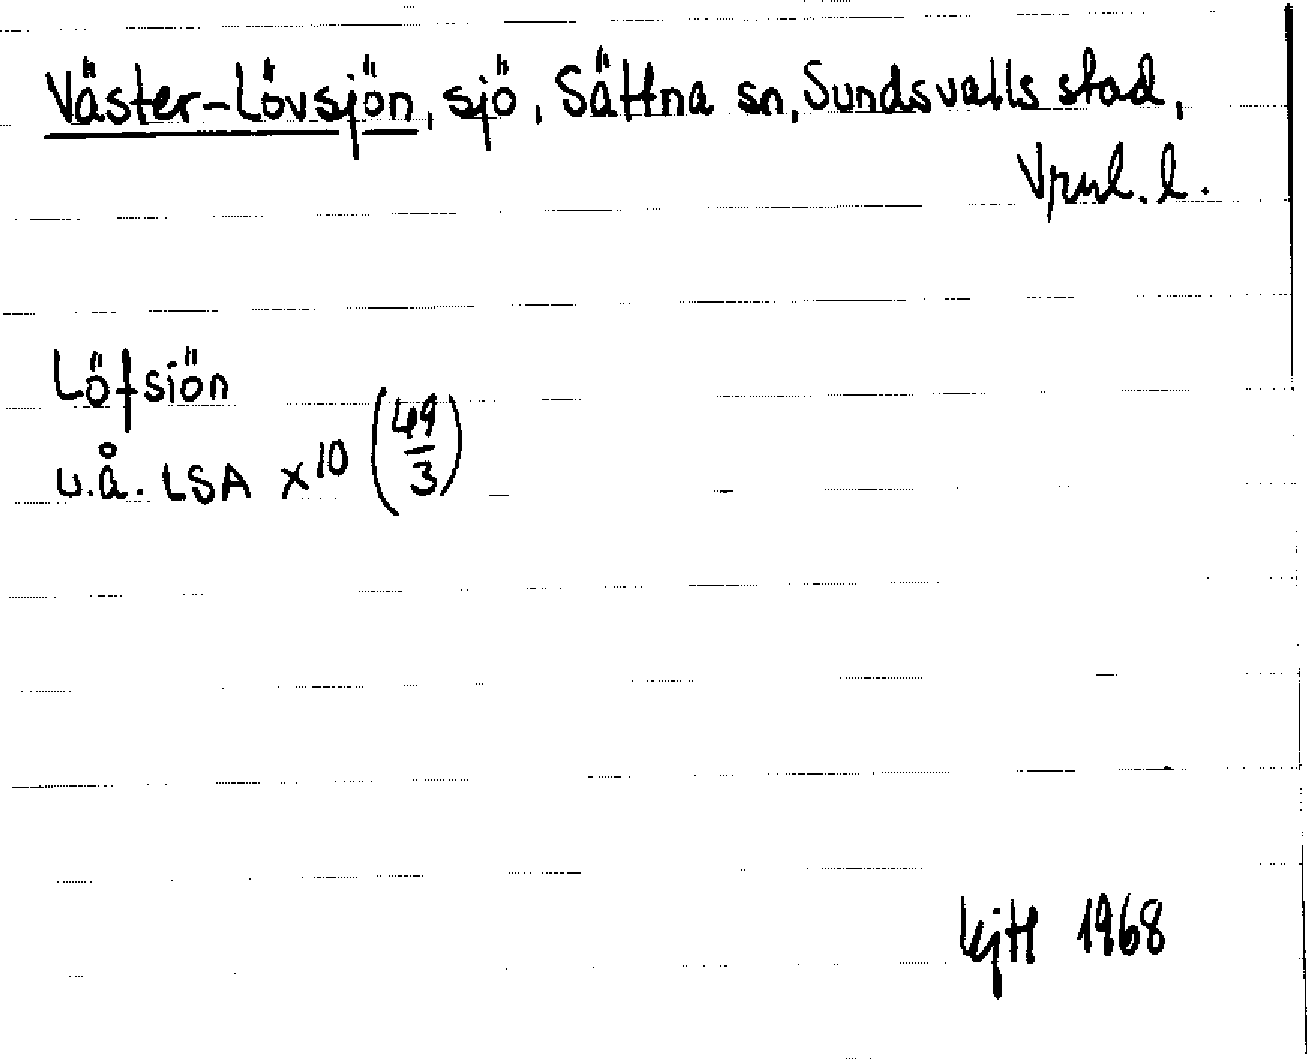 Väster-Lövsjön, sjö, Sättna sn, Sundsvalls stad,
Vrnl. l.
Löfsiön
u.å. LSA x10 (49/3)
1968